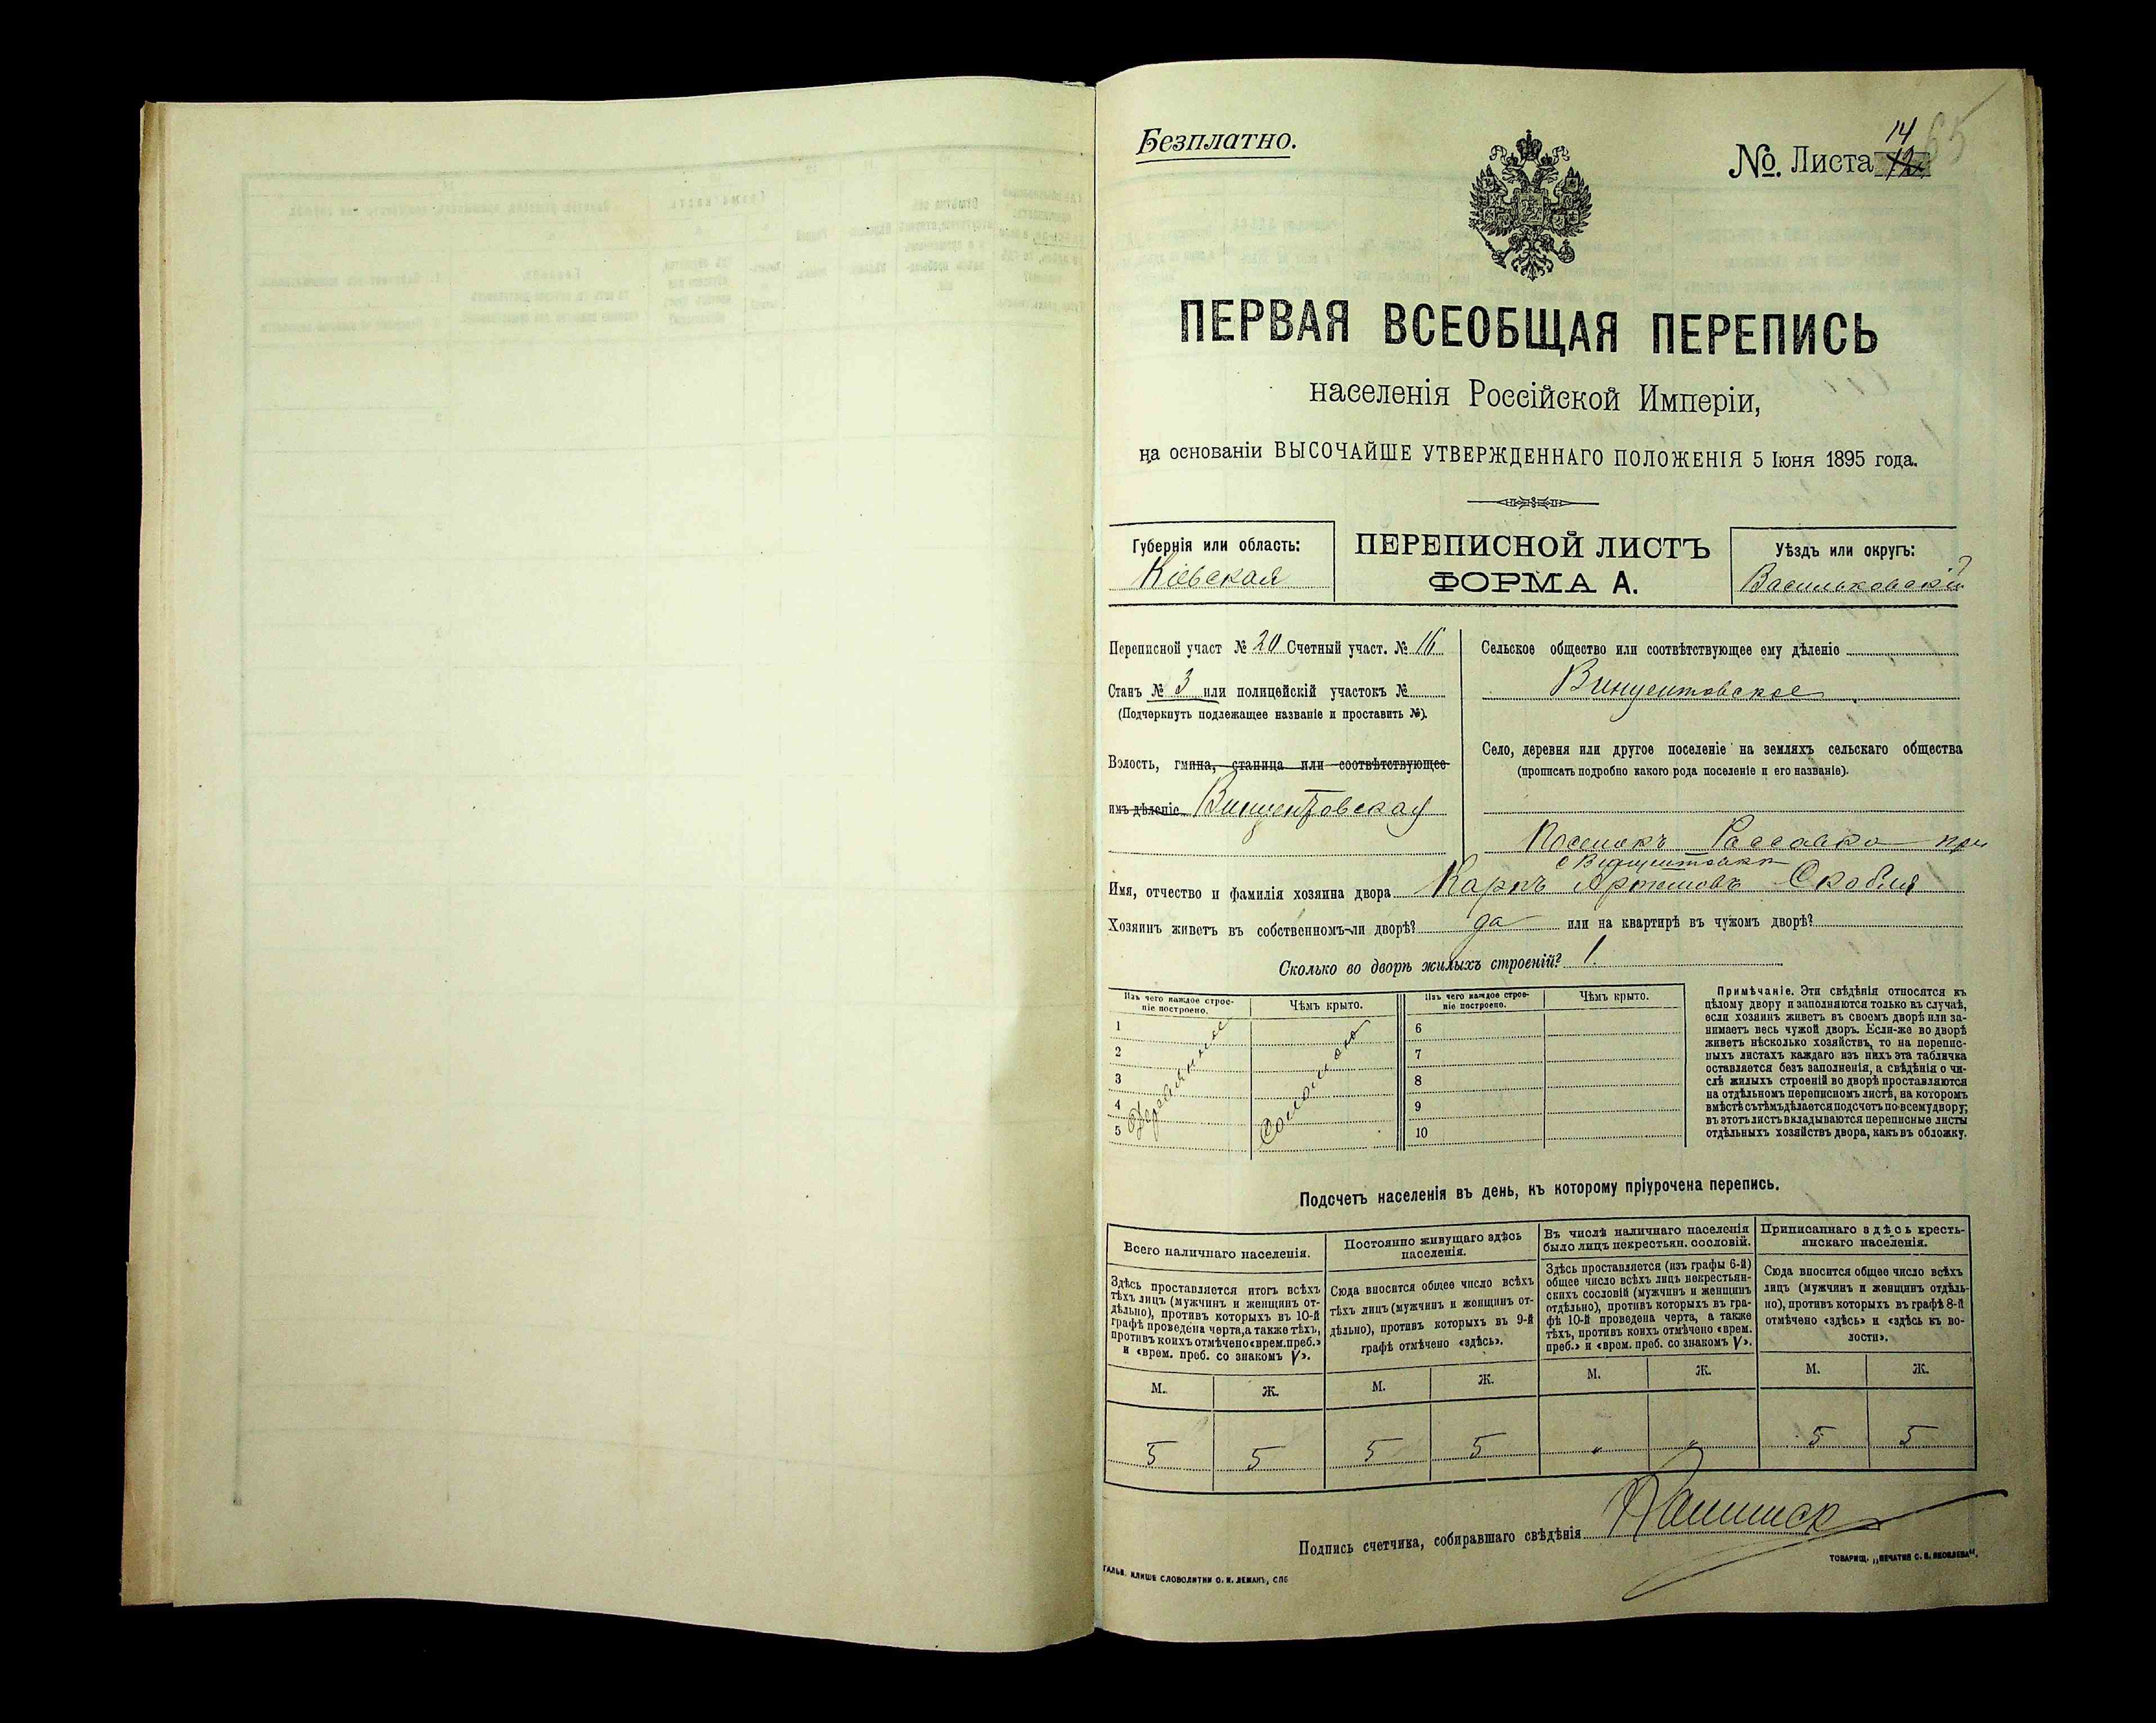 Безплатно.
№. Листа 12
14
65
ПЕРВАЯ ВСЕОБЩАЯ ПЕРЕПИСЬ
населенія Россійской Имперіи,
на основаніи ВЫСОЧАЙШЕ УТВЕРЖДЕННАГО ПОЛОЖЕНІЯ 5 Іюня 1895 года.
Губернія или область:
Кіевская
ПЕРЕПИСНОЙ ЛИСТЪ
ФОРМА А.
Уѣздъ или округъ:
Васильковскій
Переписной участ № 20 Счетный участ. № 16
Станъ № 3 или полицейскій участокъ №
(Подчеркнуть подлежащее названіе и проставить №).
Волость, гмина, станица или соотвѣтствующее
имъ дѣленіе Винцентовская
Сельское общество или соотвѣтствующее ему дѣленіе
Винцентовское
Село, деревня или другое поселеніе на земляхъ сельскаго общества
(прописать подробно какого рода поселеніе и его названіе).
Поселокъ Рассавка при
с Винцентовки
Имя, отчество и фамилія хозяина двора Карпъ Артемовъ Скобля
Хозяинъ живетъ въ собственномъ-ли дворѣ? да или на квартирѣ въ чужомъ дворѣ?
Сколько во дворѣ жилыхъ строеній? 1.
Изъ чего каждое строе-
ніе построено.
Чѣмъ крыто.
Изъ чего каждое строе-
ніе построено.
Чѣмъ крыто.
1
2
3
4
5
соломою
6
7
8
9
10
Примѣчаніе. Эти свѣдѣнія относятся къ
цѣлому двору и заполняются только въ случаѣ,
если хозяинъ живетъ въ своемъ дворѣ или за-
нимаетъ весь чужой дворъ. Если-же во дворѣ
живетъ нѣсколько хозяйствъ, то на перепис-
ныхъ листахъ каждаго изъ нихъ эта табличка
оставляется безъ заполненія, а свѣдѣнія о чи-
слѣ жилыхъ строеній во дворѣ проставляются
на отдѣльномъ переписномъ листѣ, на которомъ
вмѣстѣ съ тѣмъ дѣлается подсчетъ по всему двору;
въ этотъ листъ вкладываются переписные листы
отдѣльныхъ хозяйствъ двора, какъ въ обложку.
Подсчетъ населенія въ день, къ которому пріурочена перепись.
Всего наличнаго населенія.
Постоянно живущаго здѣсь
населенія.
Въ числѣ наличнаго населенія
было лицъ некрестьян. сословій.
Приписаннаго здѣсь кресть-
янскаго населенія.
Здѣсь проставляется итогъ всѣхъ
тѣхъ лицъ (мужчинъ и женщинъ от-
дѣльно), противъ которыхъ въ 10-й
графѣ проведена черта, а также тѣхъ,
противъ коихъ отмѣчено «врем. преб.»
и «врем. преб. со знакомъ V».
Сюда вносится общее число всѣхъ
тѣхъ лицъ (мужчинъ и женщинъ от-
дѣльно), противъ которыхъ въ 9-й
графѣ отмѣчено «здѣсь».
Здѣсь проставляется (изъ графы 6-й)
общее число всѣхъ лицъ некрестьян-
скихъ сословій (мужчинъ и женщинъ
отдѣльно), противъ которыхъ въ гра-
фѣ 10-й проведена черта, а также
тѣхъ, противъ коихъ отмѣчено «врем.
преб.» и «врем. преб. со знакомъ V».
Сюда вносится общее число всѣхъ
лицъ (мужчинъ и женщинъ отдѣль-
но), противъ которыхъ въ графѣ 8-й
отмѣчено «здѣсь» и «здѣсь къ во-
лости».
М. Ж. М. Ж. М. Ж. М. Ж.
5 5 5 5 " " 5 5
Подпись счетчика, собиравшаго свѣдѣнія
ГАЛЬВ. КЛИШЕ СЛОВОЛИТНИ О. И. ЛЕМАНЪ, СПБ
ТОВАРИЩ. „ПЕЧАТНЯ С. П. ЯКОВЛЕВА".